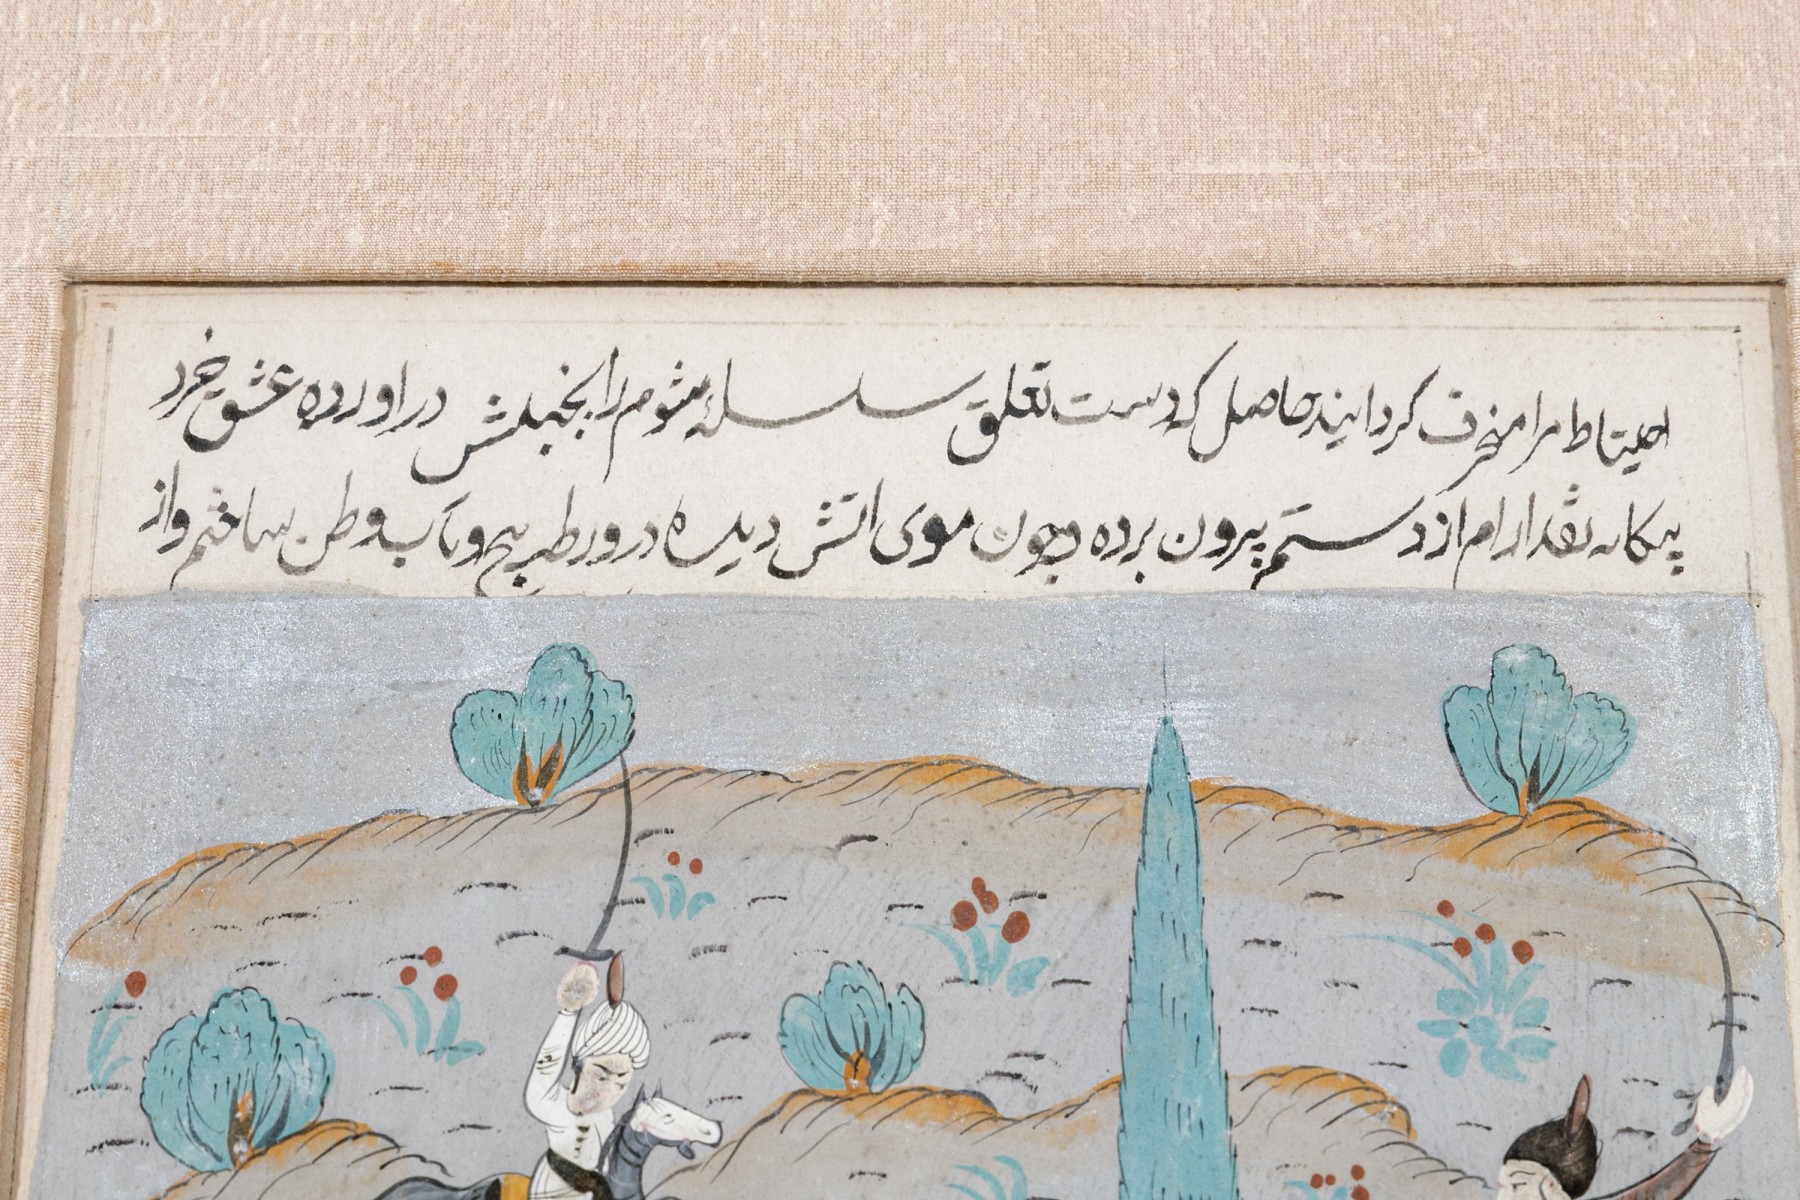 احتیاط مرا منحرف کردانید حاصل که دست تعلق سلسله شوم را بخبلش در اورده عشق خرد
بیکانه نقد ارام از دستم بیرون برده و چون موی اتش دیده در ورطه پیچ و تاب و طن ساختم واز